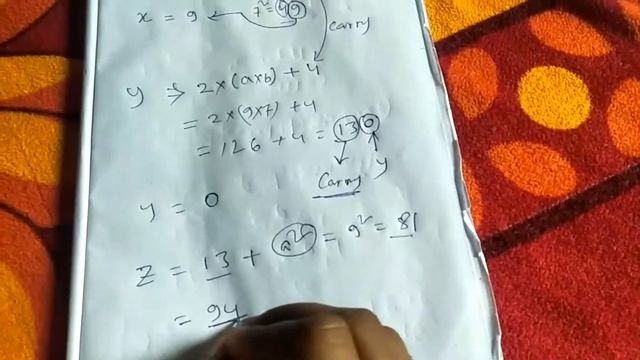 x = 9 ← 7² = 49
carry
y ⇒ 2×(a×b) + 4
= 2×(9×7) + 4
= 126 + 4 = 130
Carry y
y = 0
Z = 13 + a² = 9² = 81
= 94